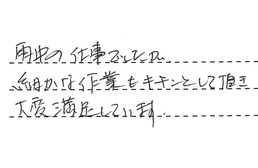 雨中の仕事でしたが
細かな作業もキチンとして頂き
大変満足しています。